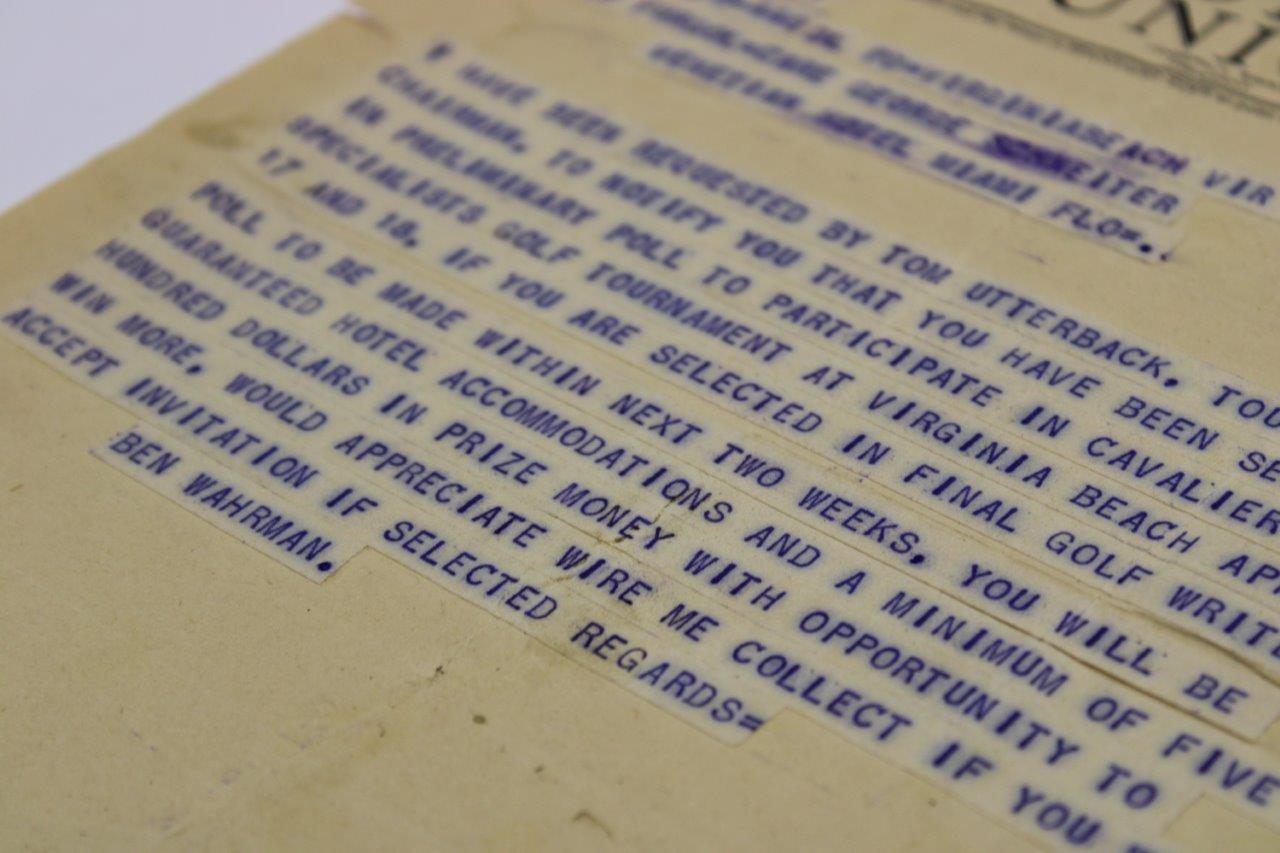 UNI
VIRGINIABEACH VIR
GEORGE SCHNEITER
VENETIAN HOTEL MIAMI FLO=.
I HAVE BEEN REQUESTED BY TOM UTTERBACK, TOU
CHAIRMAN, TO NOTIFY YOU THAT YOU HAVE BEEN SE
IN PRELIMINARY POLL TO PARTICIPATE IN CAVALIER
SPECIALISTS GOLF TOURNAMENT AT VIRGINIA BEACH AP
17 AND 18. IF YOU ARE SELECTED IN FINAL GOLF WRITE
POLL TO BE MADE WITHIN NEXT TWO WEEKS, YOU WILL BE
GUARANTEED HOTEL ACCOMMODATIONS AND A MINIMUM OF FIVE
HUNDRED DOLLARS IN PRIZE MONEY WITH OPPORTUNITY TO
WIN MORE, WOULD APPRECIATE WIRE ME COLLECT IF YOU
ACCEPT INVITATION IF SELECTED REGARDS=
BEN WAHRMAN.